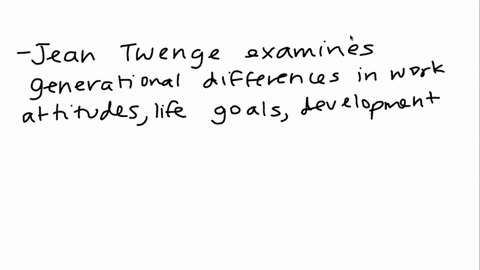 -Jean Twenge examines
generational differences in work
attitudes, life goals, development